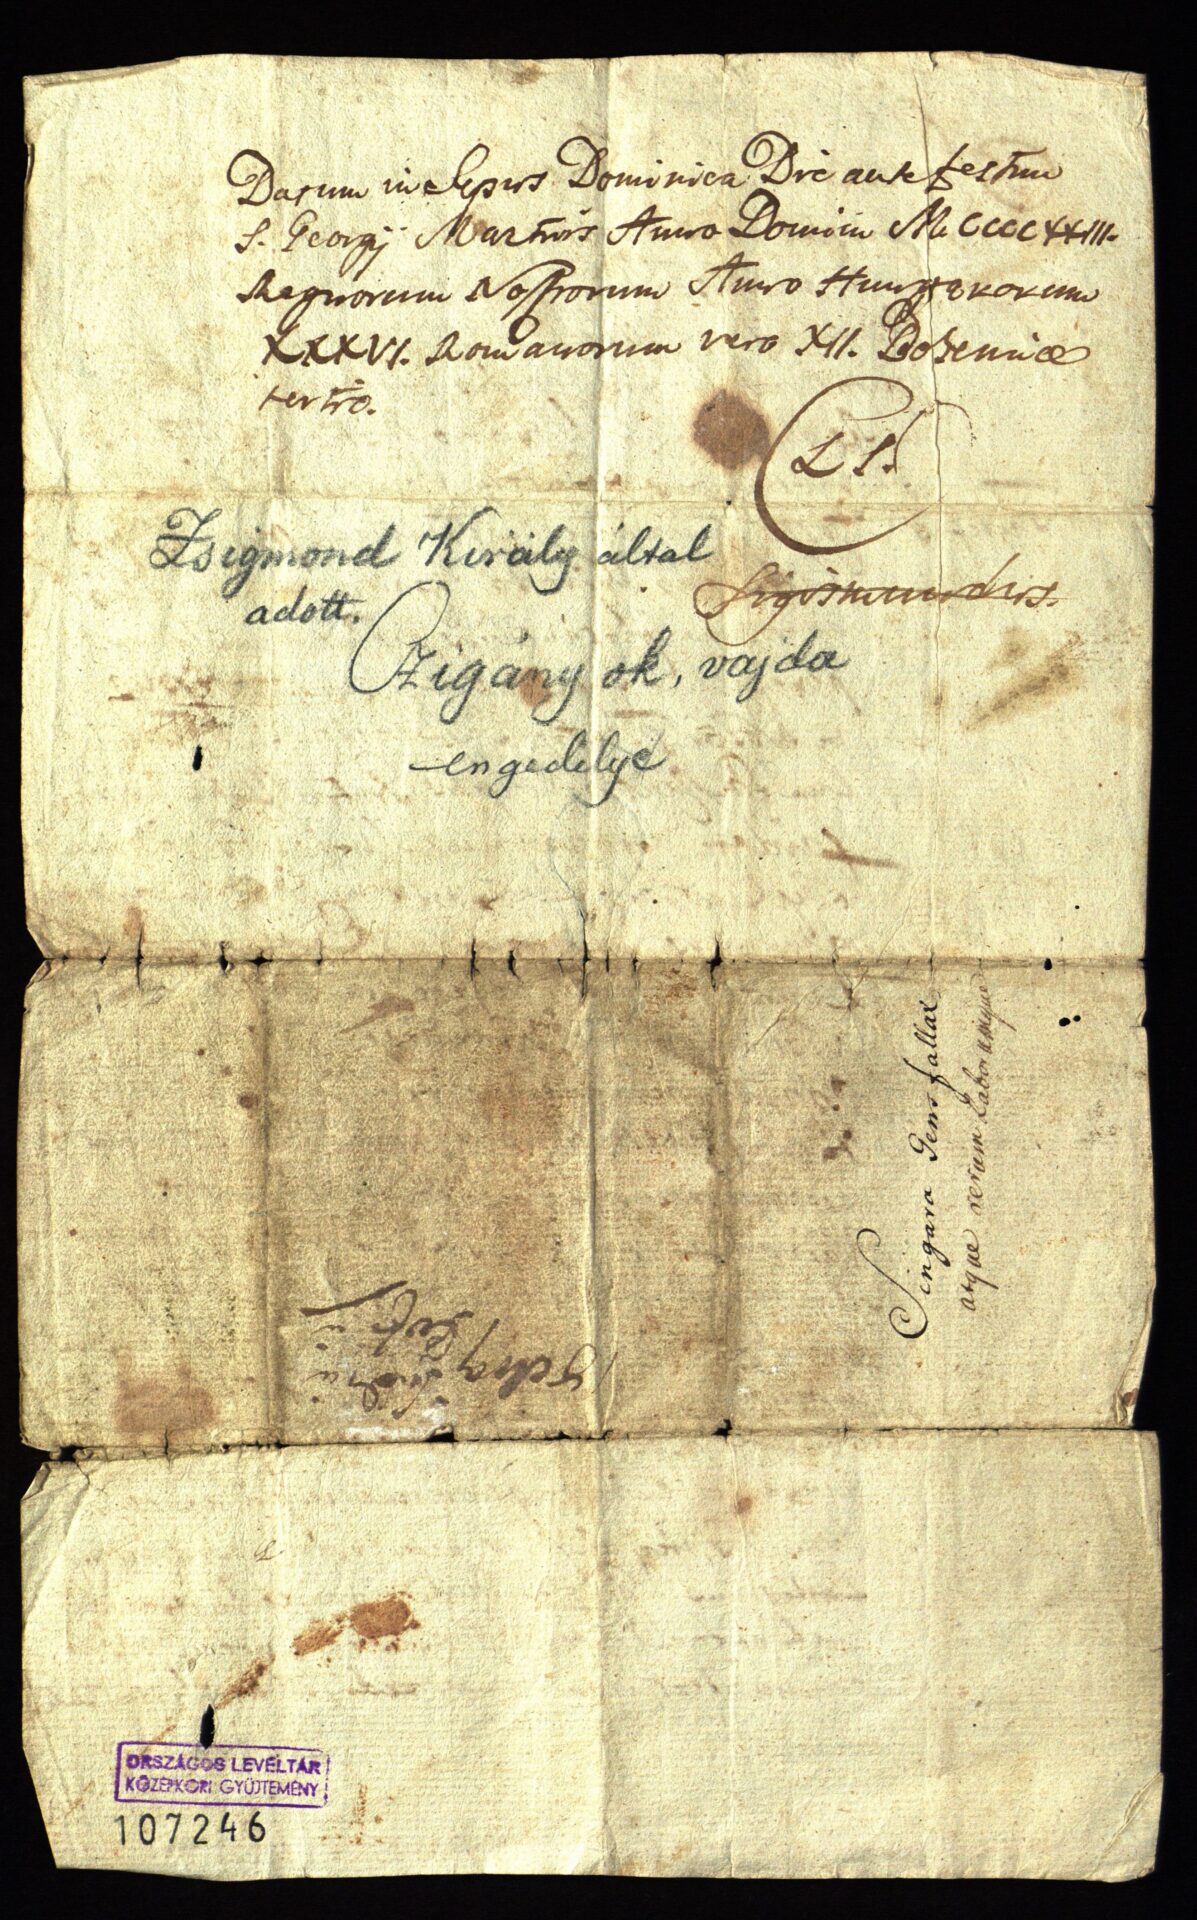 Datum in Sepus Dominica Die ante festum
S. Georgij Martiris Anno Domini MCCCCXXIII.
Regnorum Nostrorum Anno Hungarorum
XXXVI. Romanorum vero XII. Bohemiae
tertio.
LS.
Sigismundus.
Zsigmond Király által
adott.
Czigány ok, vajda
engedelye
Singara Gens fallax
atque rerum
ORSZÁGOS LEVÉLTÁR
KÖZÉPKORI GYŰJTEMÉNY
107246